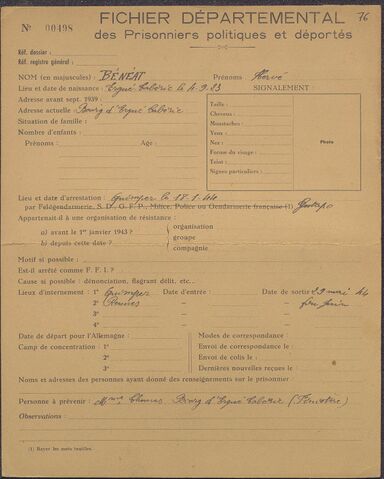 76
FICHIER DÉPARTEMENTAL
des Prisonniers politiques et déportés
N° 00498
Réf. dossier :
Réf. registre général :
NOM (en majuscules) : BÉNÉAT Prénoms Hervé
Lieu et date de naissance : Ergué Gabéric le 4.9.23 SIGNALEMENT :
Adresse avant sept. 1939 :
Adresse actuelle Bourg d'Ergué Gabéric
Situation de famille :
Nombre d'enfants :
Prénoms : Age :
Taille :
Cheveux :
Moustaches :
Yeux :
Nez :
Forme du visage :
Teint :
Signes particuliers :
Photo
Lieu et date d'arrestation : Quimper le 18.1.44
par Feldgendarmerie, S. D., G. F. P., Milice, Police ou Gendarmerie française (1) Gestapo
Appartenait-il à une organisation de résistance :
a) avant le 1er janvier 1943 ?
b) depuis cette date ?
organisation
groupe
compagnie
Motif si possible :
Est-il arrêté comme F. F. I. ?
Cause si possible : dénonciation, flagrant délit, etc..
Lieux d'internement : 1° Quimper Date d'entrée : Date de sortie 29 mai 44
2° Rennes — — fin juin
3° — —
4° — —
Date de départ pour l'Allemagne :
Camp de concentration :
Modes de correspondance :
Envoi de correspondance :
Envoi de colis le :
Dernières nouvelles reçues le :
Noms et adresses des personnes ayant donné des renseignements sur le prisonnier
Personne à prévenir : Mme Bourg d'Ergué Gabéric (Finistère)
Observations :
(1) Rayer les mots inutiles.